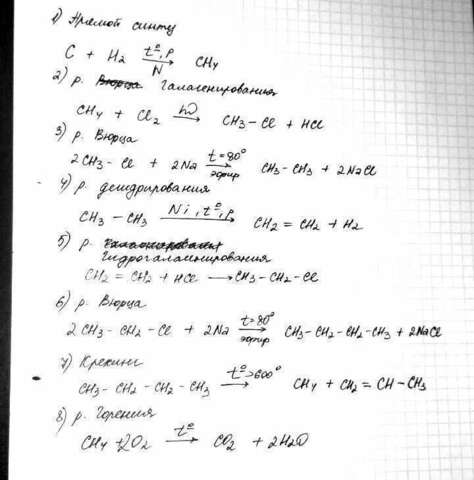 1) Прямой синтез
C + H₂ t°,p → N CH₄
2) р. Галагенирования
CH₄ + Cl₂ hν → CH₃ – Cl + HCl
3) р. Вюрца
2CH₃ – Cl + 2Na t=80° → эфир CH₃ – CH₃ + 2NaCl
4) р. дегидрирования
CH₃ – CH₃ Ni, t°, p → CH₂ = CH₂ + H₂
5) р.
Гидрогалагенирования
CH₂ = CH₂ + HCl → CH₃ – CH₂ – Cl
6) р. Вюрца
2CH₃ – CH₂ – Cl + 2Na t=80° → эфир CH₃ – CH₂ – CH₂ – CH₃ + 2NaCl
7) Крекинг
CH₃ – CH₂ – CH₂ – CH₃ t°>600° → CH₄ + CH₂ = CH – CH₃
8) р. Горения
CH₄ + 2O₂ t° → CO₂ + 2H₂O